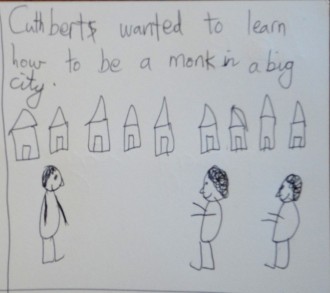 Cuthberts wanted to learn
how to be a monk in a big
city.